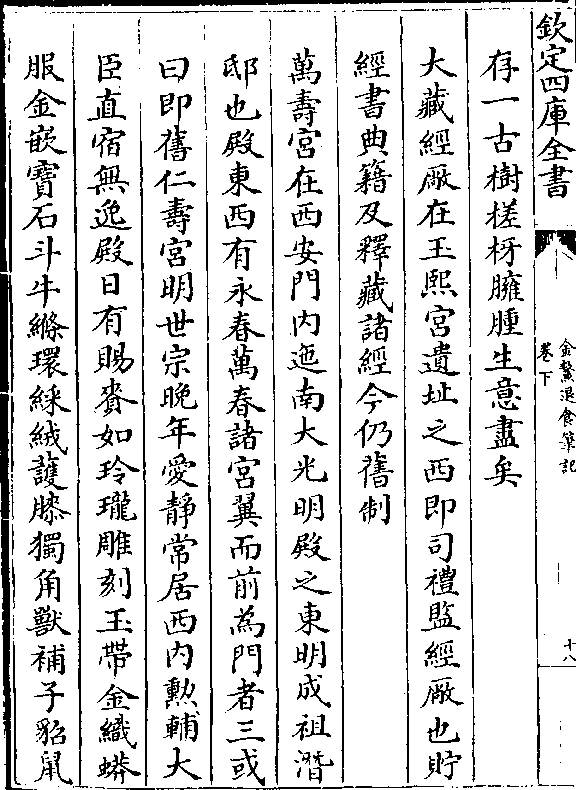 欽定四庫全書
金鰲退食筆記
卷下
十八
存一古樹槎枒臃腫生意盡矣
大藏經厰在玉熙宮遺址之西即司禮監經厰也貯
經書典籍及釋藏諸經今仍舊制
萬壽宮在西安門内迤南大光明殿之東明成祖潛
邸也殿東西有永春萬春諸宮翼而前為門者三或
曰即舊仁壽宮明世宗晚年愛靜常居西内勲輔大
臣直宿無逸殿日有賜賚如玲瓏雕刻玉帶金織蟒
服金嵌寶石斗牛縧環綵絨䕶膝獨角獸補子貂鼠